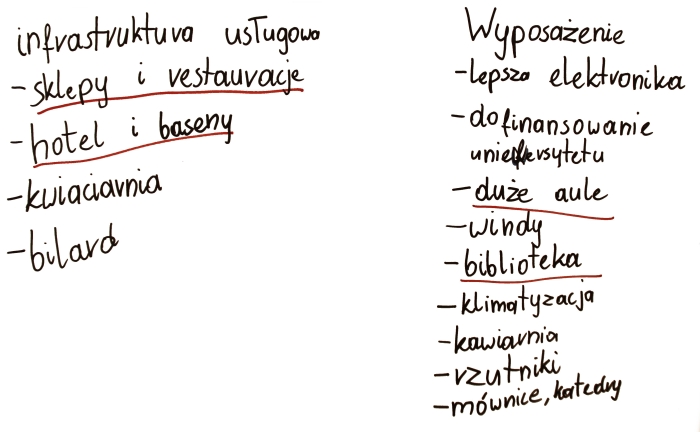 infrastruktura usługowa
- sklepy i restauracje
- hotel i baseny
- kwiaciarnia
- bilard
Wyposażenie
- lepsza elektronika
- dofinansowanie
uniwersytetu
- duże aule
- windy
- biblioteka
- klimatyzacja
- kawiarnia
- rzutniki
- mównice, katedry